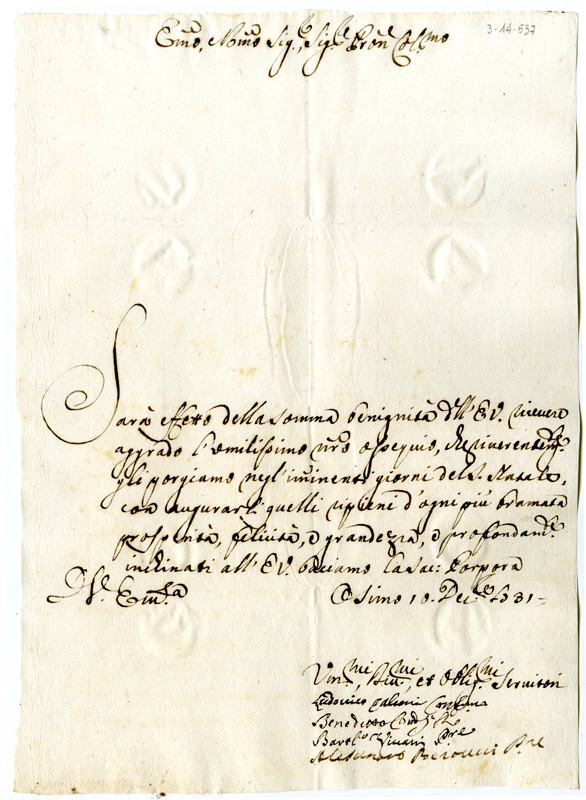 3-14-537
Emo, Rmo Sig.r, Sig.r Pron Col.mo
Sarà effetto della somma benignità dell' E.V. ricevere
aggrado l'omilissimo nro ossequio, che riverentem.te
gli porgiamo negl'imminenti giorni del S. Natale,
con augurarl' quelli ripieni d'ogni più bramata
prosperità, felicità, e grandezza, e profondam.te
inclinati all' E.V. baciamo la Sac: Porpora
D.V. Em.za
Osimo 10. Dec.re
Um.mi, Div.mi, et Oblig.mi Servitori
Ludovico
Benedetto
Bart.o Pre
Alesandro Pre